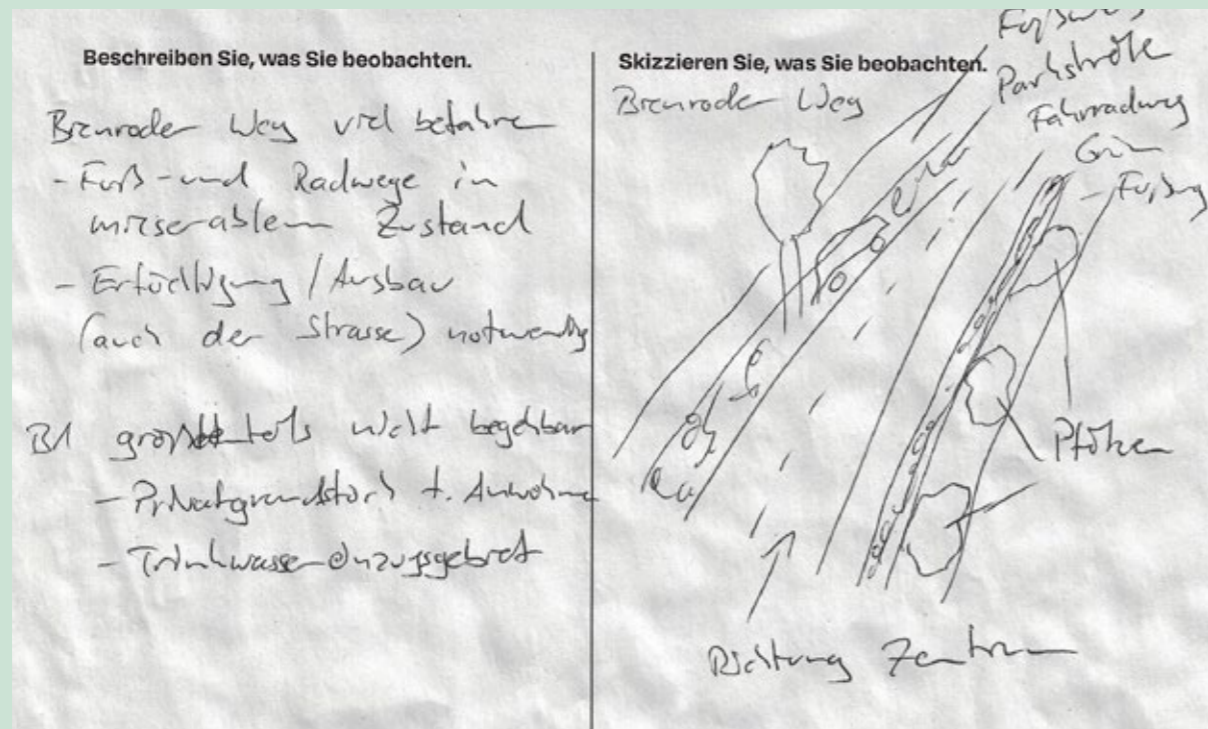 Beschreiben Sie, was Sie beobachten.
Bienroder Weg viel befahren
- Fuß- und Radwege in
miserablem Zustand
- Ertüchtigung / Ausbau
(auch der Strasse) notwendig
B1 größtenteils nicht begehbar
- Privatgrundstück f. Anwohner
- Trinkwassereinzugsgebiet
Skizzieren Sie, was Sie beobachten.
Bienroder Weg
Fußweg
Parkstraße
Fahrradweg
Grün
- Fußweg
Pfützen
Richtung Zentrum